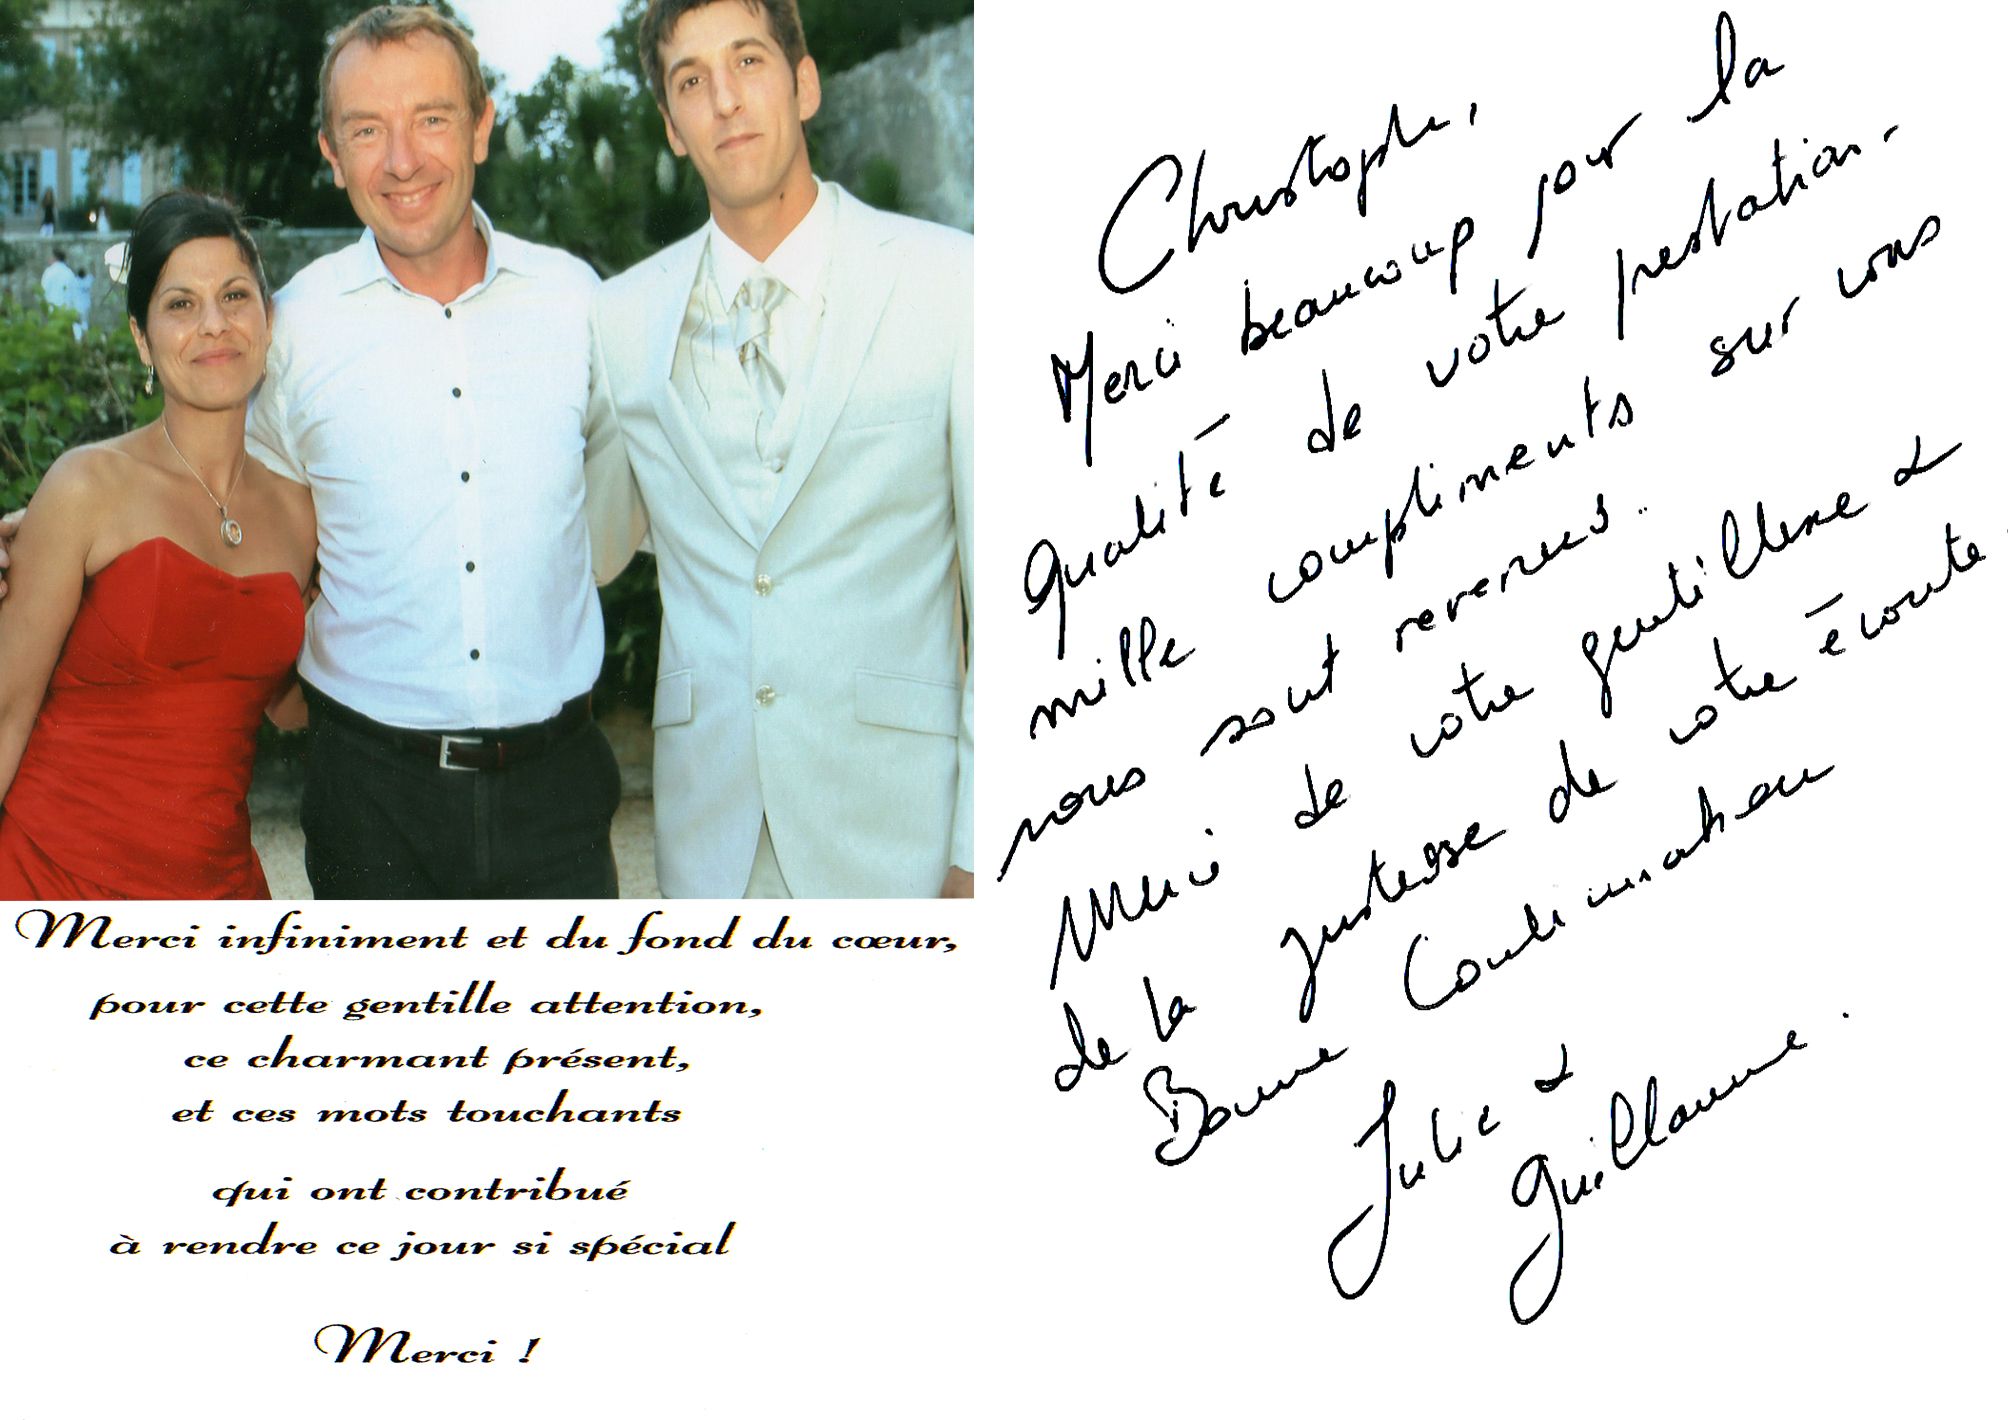 Merci infiniment et du fond du cœur,
pour cette gentille attention,
ce charmant présent,
et ces mots touchants
qui ont contribué
à rendre ce jour si spécial
Merci !
Christophe,
Merci beaucoup pour la
qualité de votre prestation.
mille compliments sur vous
nous sont revenus.
Merci de votre gentillesse &
de la justesse de votre écoute.
Bonne Continuation
Julie &
Guillaume.